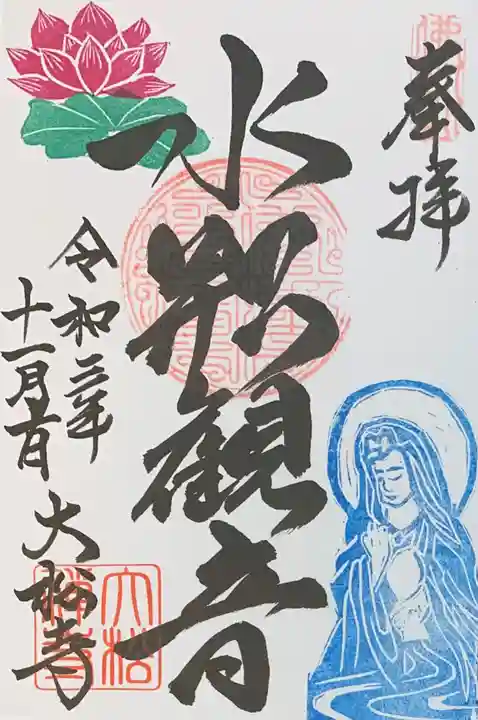 奉拝
水月観音
令和三年
十一月
大松寺
大松
禅寺